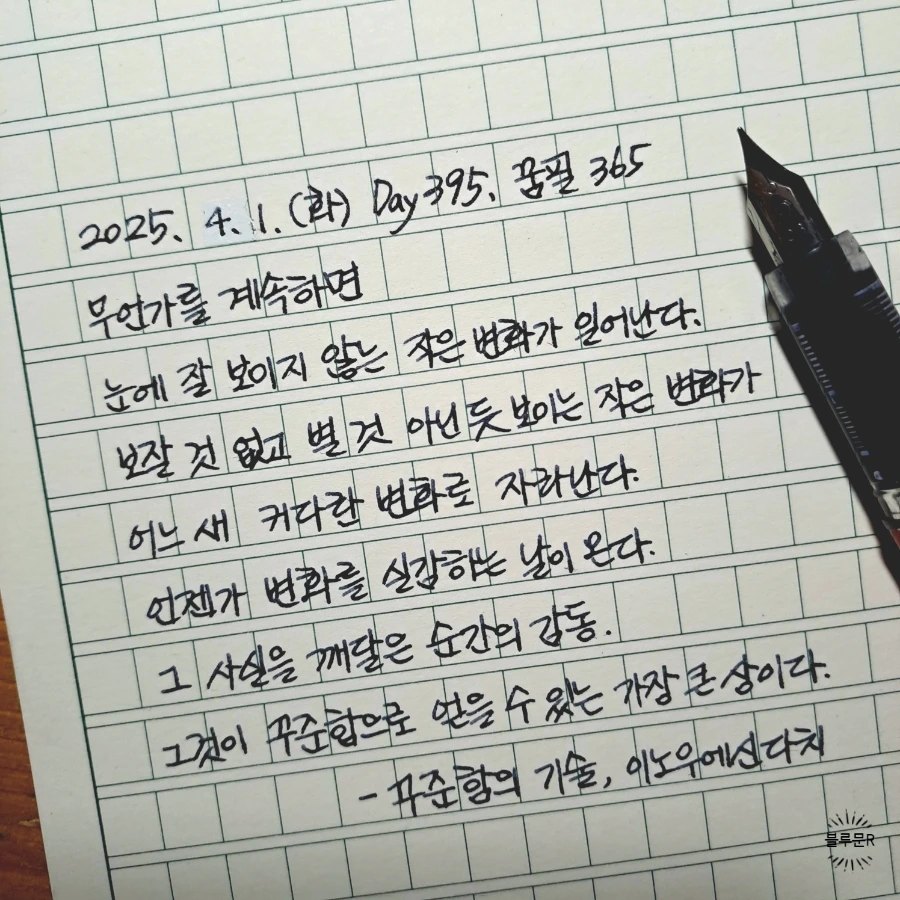 2025. 4. 1. (화) Day 395. 꿈필 365
무언가를 계속하면
눈에 잘 보이지 않는 작은 변화가 일어난다.
보잘 것 없고 별 것 아닌 듯 보이는 작은 변화가
어느 새 커다란 변화로 자라난다.
언젠가 변화를 실감하는 날이 온다.
그 사실을 깨달은 순간의 감동.
그것이 꾸준함으로 얻을 수 있는 가장 큰 상이다.
- 꾸준함의 기술, 이노우에신다치
블루문R